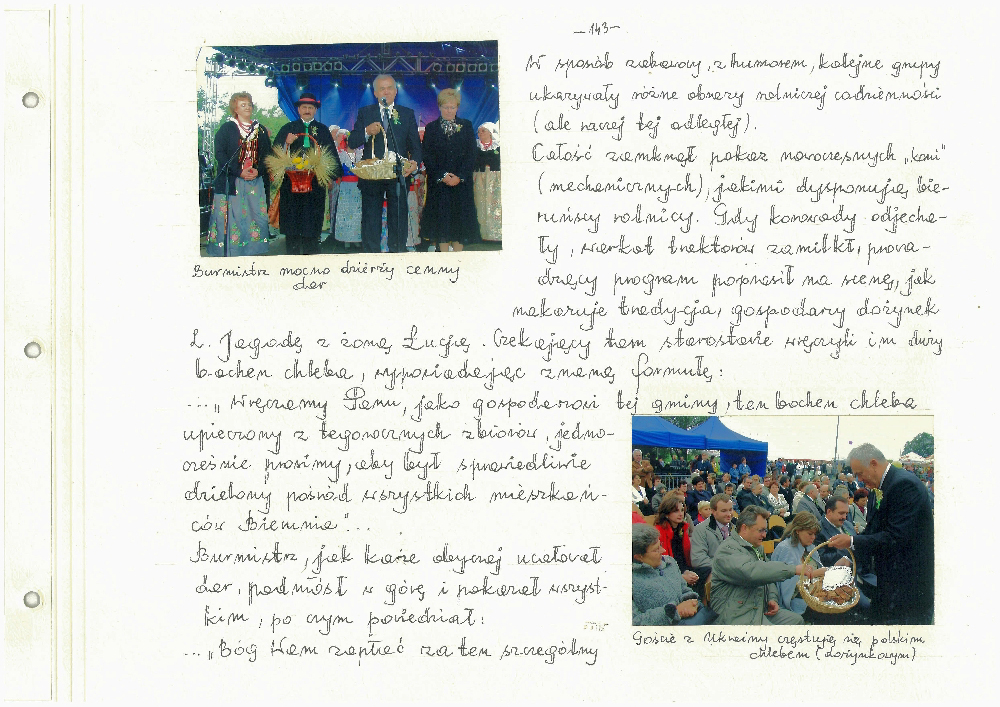 —143—
W sposób zabawny, z humorem, kolejne grupy
ukazywały różne obrazy rolniczej codzienności
(ale raczej tej odległej).
Całość zamknął pokaz nowoczesnych „koni”
(mechanicznych), jakimi dysponują bie-
ruńscy rolnicy. Gdy konwady odjecha-
ły, warkot traktorów zamilkł, prowa-
dzący program poprosił na scenę, jak
nakazuje tradycja, gospodarzy dożynek
L. Jagodę z żoną Łucją. Czekający tam starostowie wręczyli im duży
bochen chleba, wypowiadając znaną formułę:
...„Wręczamy Panu, jako gospodarzowi tej gminy, ten bochen chleba
upieczony z tegorocznych zbiorów, jedno-
cześnie prosimy, aby był sprawiedliwie
dzielony pośród wszystkich mieszkań-
ców Bierunia”...
Burmistrz, jak każe obyczaj ucałował
dar, podniósł w górę i pokazał wszyst-
kim, po czym powiedział:
...„Bóg Wam zapłać za ten szczególny
Burmistrz mocno dzierży cenny
dar
Goście z Ukrainy częstują się polskim
chlebem (dożynkowym)